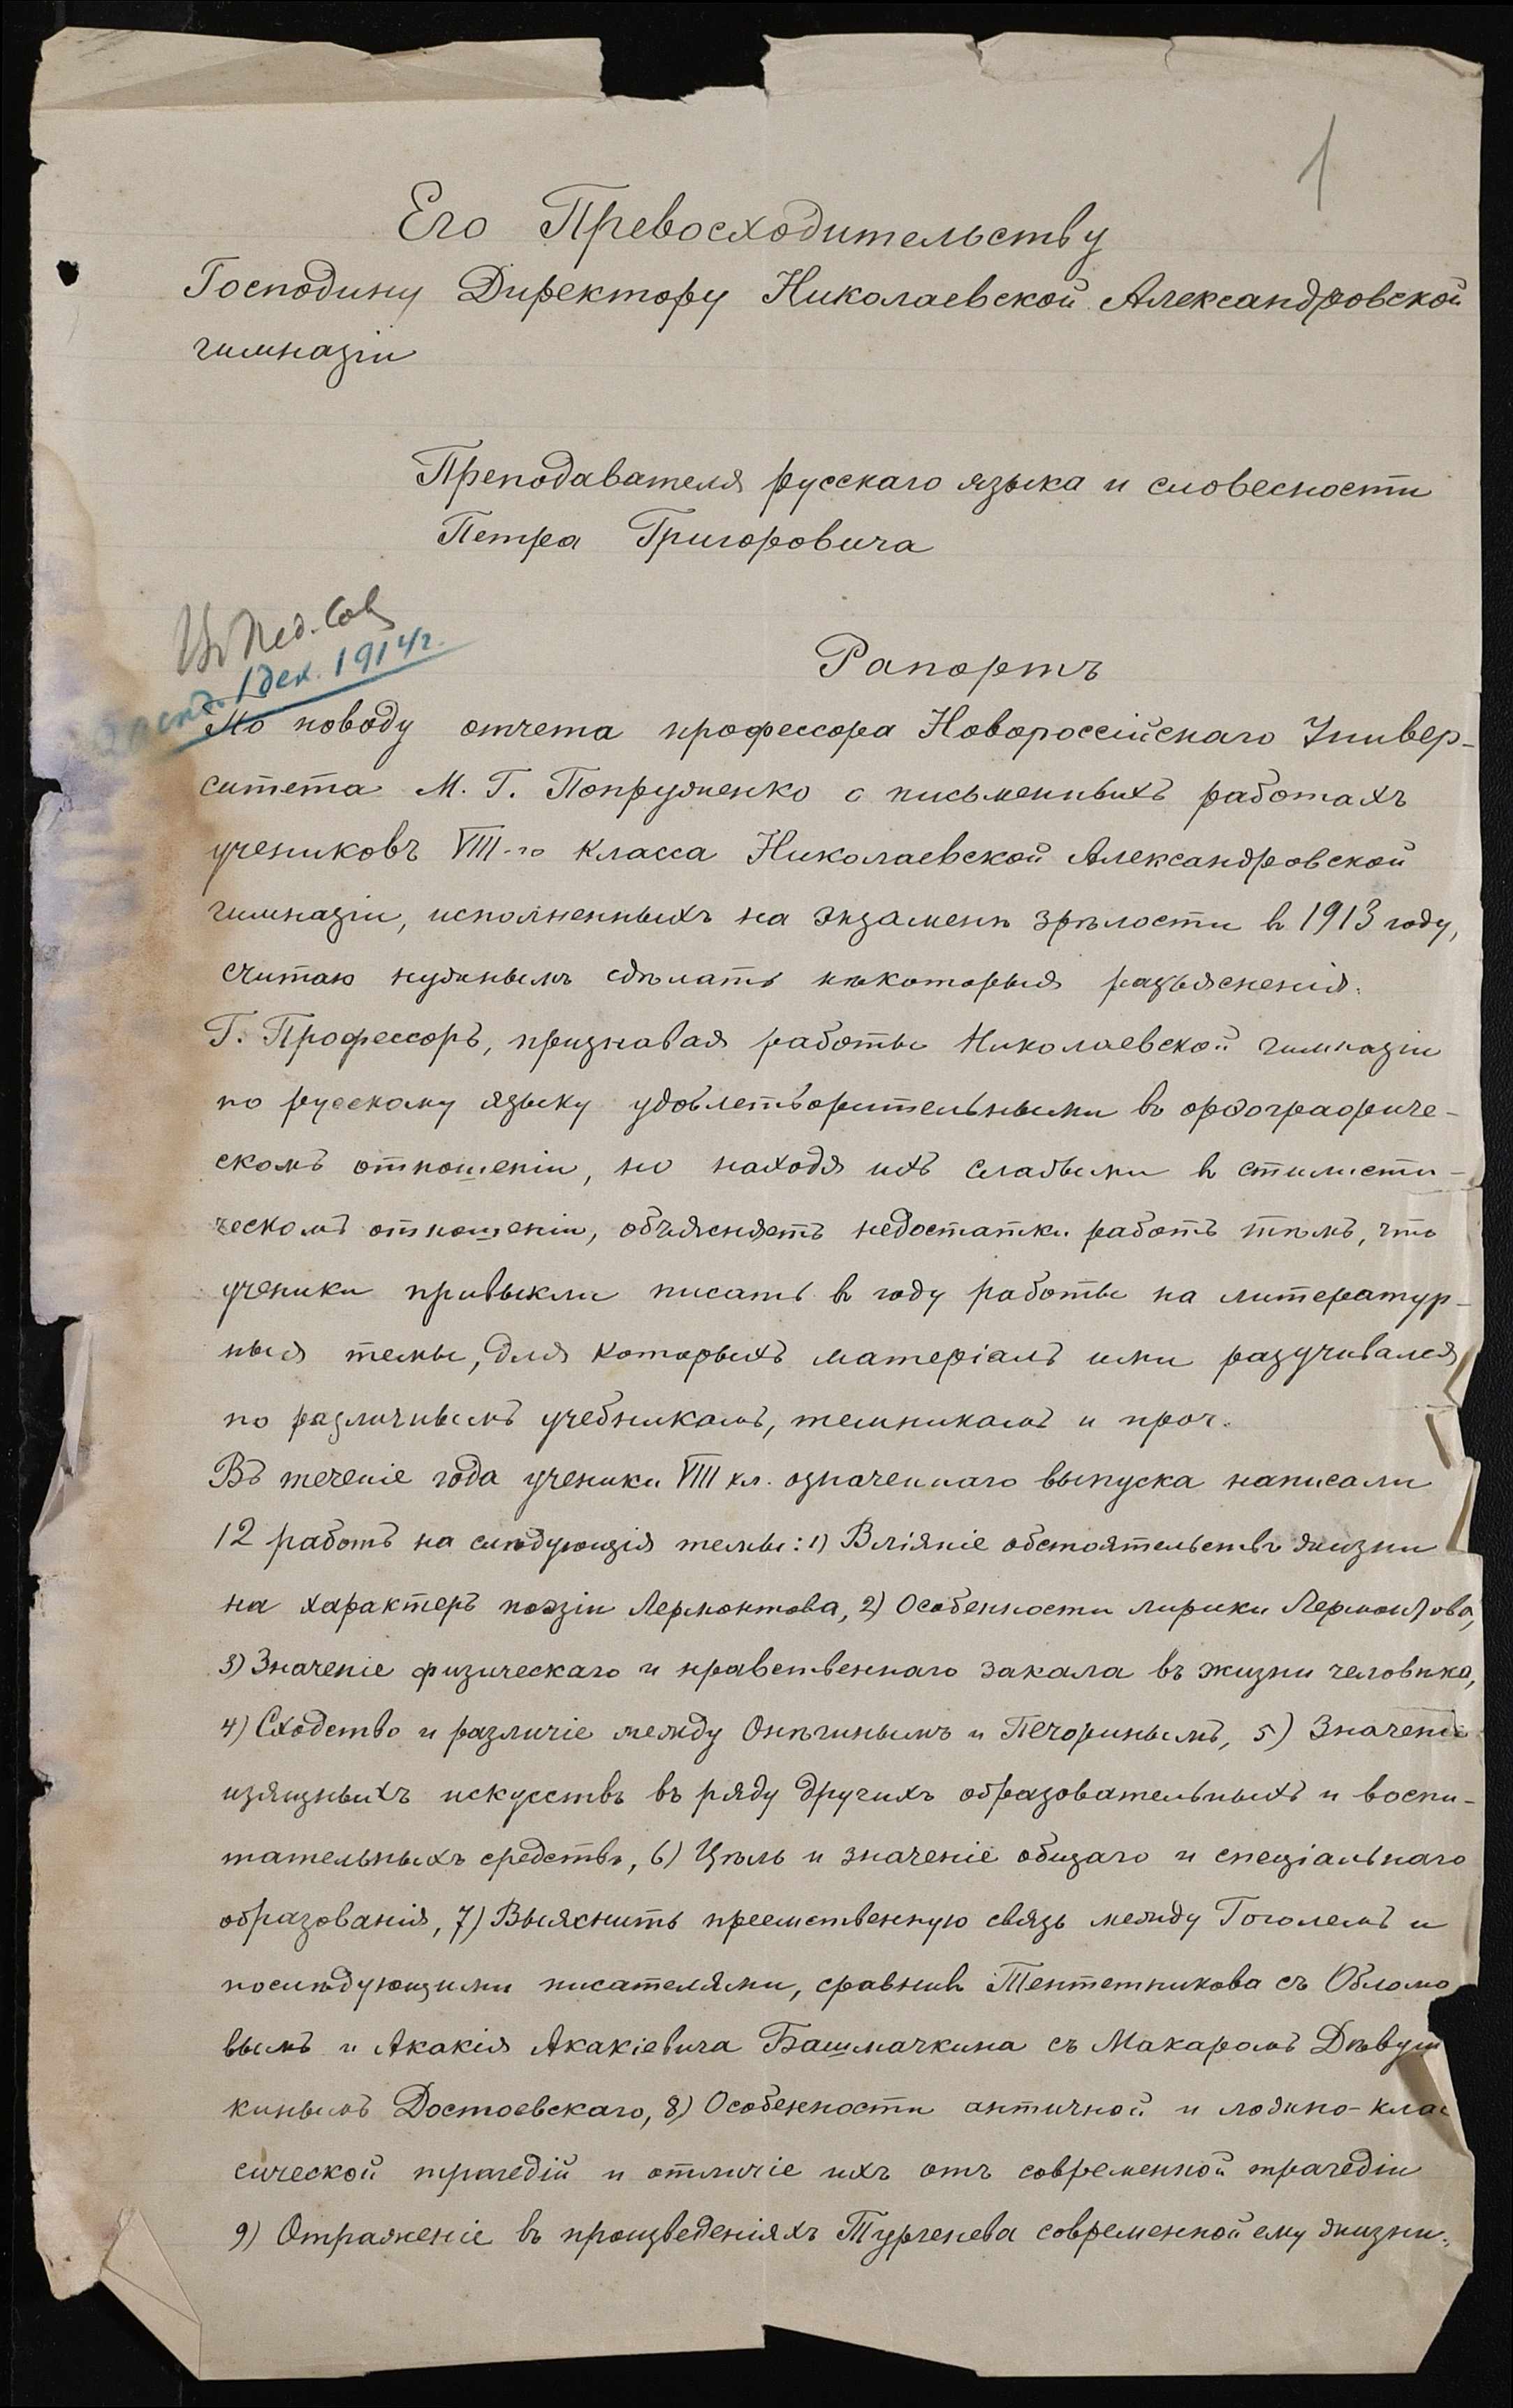 1
Его Превосходительству
Господину Директору Николаевской Александровской
гимназіи
Преподавателя русскаго языка и словесности
Петра Григоровича
Въ Пед. Сов
засѣд. 1 дек. 1914 г.
Рапортъ
По поводу отчета профессора Новороссійскаго Универ-
ситета М. Г. Попруженко о письменныхъ работахъ
учениковъ VIII-го класса Николаевской Александровской
гимназіи, исполненныхъ на экзаменѣ зрѣлости въ 1913 году,
считаю нужнымъ сдѣлать нѣкоторыя разъясненія.
Г. Профессоръ, признавая работы Николаевской гимназіи
по русскому языку удовлетворительными въ орѳографиче-
скомъ отношеніи, но находя ихъ слабыми въ стилисти-
ческомъ отношеніи, объясняетъ недостатки работъ тѣмъ, что
ученики привыкли писать въ году работы на литератур-
ныя темы, для которыхъ матеріалъ ими разучивался
по различнымъ учебникамъ, темникамъ и проч.
Въ теченіе года ученики VIII кл. означеннаго выпуска написали
12 работъ на слѣдующія темы: 1) Вліяніе обстоятельствъ жизни
на характеръ поэзіи Лермонтова, 2) Особенности лирики Лермонтова,
3) Значеніе физическаго и нравственнаго закала въ жизни человѣка,
4) Сходство и различіе между Онѣгинымъ и Печоринымъ, 5) Значеніе
изящныхъ искусствъ въ ряду другихъ образовательныхъ и воспи-
тательныхъ средствъ, 6) Цѣль и значеніе общаго и спеціальнаго
образованія, 7) Выяснить преемственную связь между Гоголемъ и
послѣдующими писателями, сравнивъ Тентетникова съ Обломо
вымъ и Акакія Акакіевича Башмачкина съ Макаромъ Дѣвуш
кинымъ Достоевскаго, 8) Особенности античной и ложно-клас
сической трагедій и отличіе ихъ отъ современной трагедіи
9) Отраженіе въ произведеніяхъ Тургенева современной ему жизни.